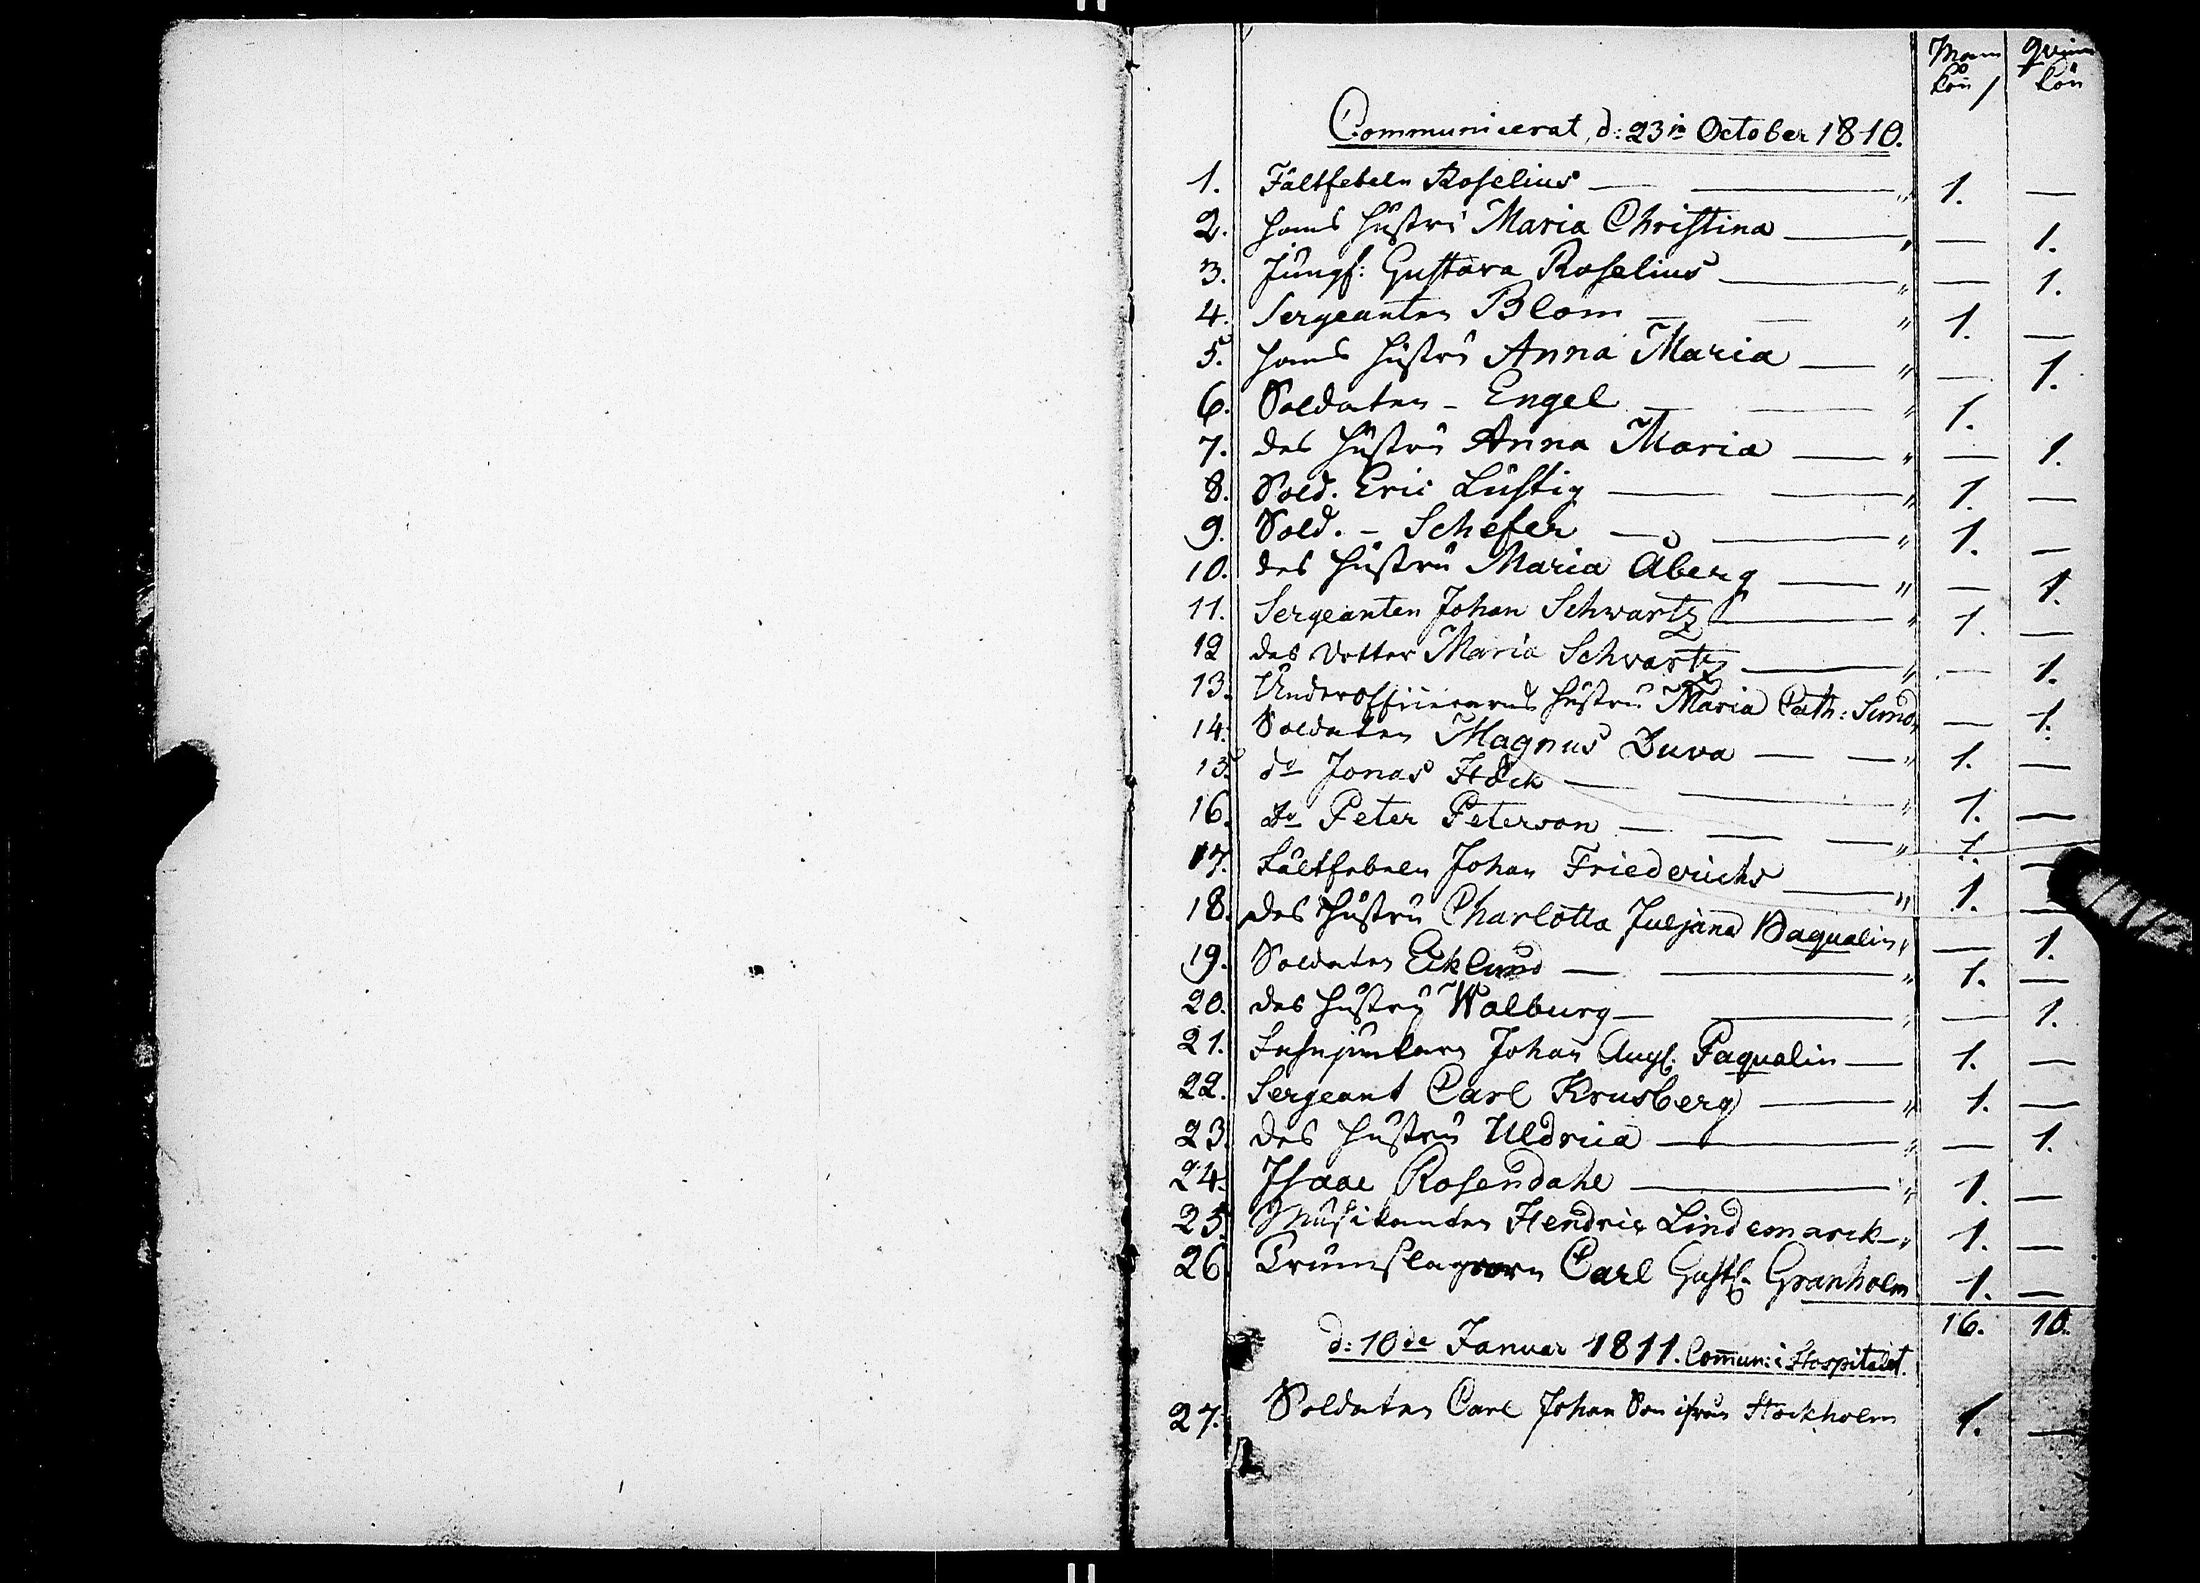 Mann kön / Qvinn kön
Communicerat, d: 23ie October 1810.
1. Fältfebeln Roselius — — " 1. —
2. hans hustru Maria Christina — " — 1.
3. Jungf: Gustava Roselius — " — 1.
4. Sergeanten Blom — — " 1. —
5. hans hustru Anna Maria — " — 1.
6. Soldaten - Engel — — " 1.
7. des hustru Anna Maria — " — 1.
8. Sold. Eric Lustig — — " 1. —
9. Sold. - Schefer — — " 1. —
10. des hustru Maria Åberg — " — 1.
11. Sergeanten Johan Schwartz — " 1. —
12 des dotter Maria Schwartz — " — 1.
13. Underofficerarens hustru Maria Cath: — 1.
14. Soldaten Magnus Duva — — " 1. —
15. do Jonas Höck — — " 1. —
16. do Peter Peterson — — — " 1. —
17. Fältfebeln Johan Friederichs — " 1. —
18. des hustru Charlotta Juljana Paqualin " — 1.
19. Soldaten Eklund — — " 1. —
20. des hustru Walburg — — " — 1.
21. Fahnjunkarn Johan Aug. Paqualin — 1. —
22. Sergeant Carl Krusberg — " 1. —
23. des hustru Uldrica — " — 1.
24. Isaac Rosendahl — " 1. —
25. Musikanten Hendric Lindemarck — " 1. —
26. Trumslagaren Carl Gust. Granholm 1. —
16. 10.
d: 10de Januar 1811. Commun: i Hospitalet.
27. Soldaten Carl Johan Son ifrån Stockholm 1. —